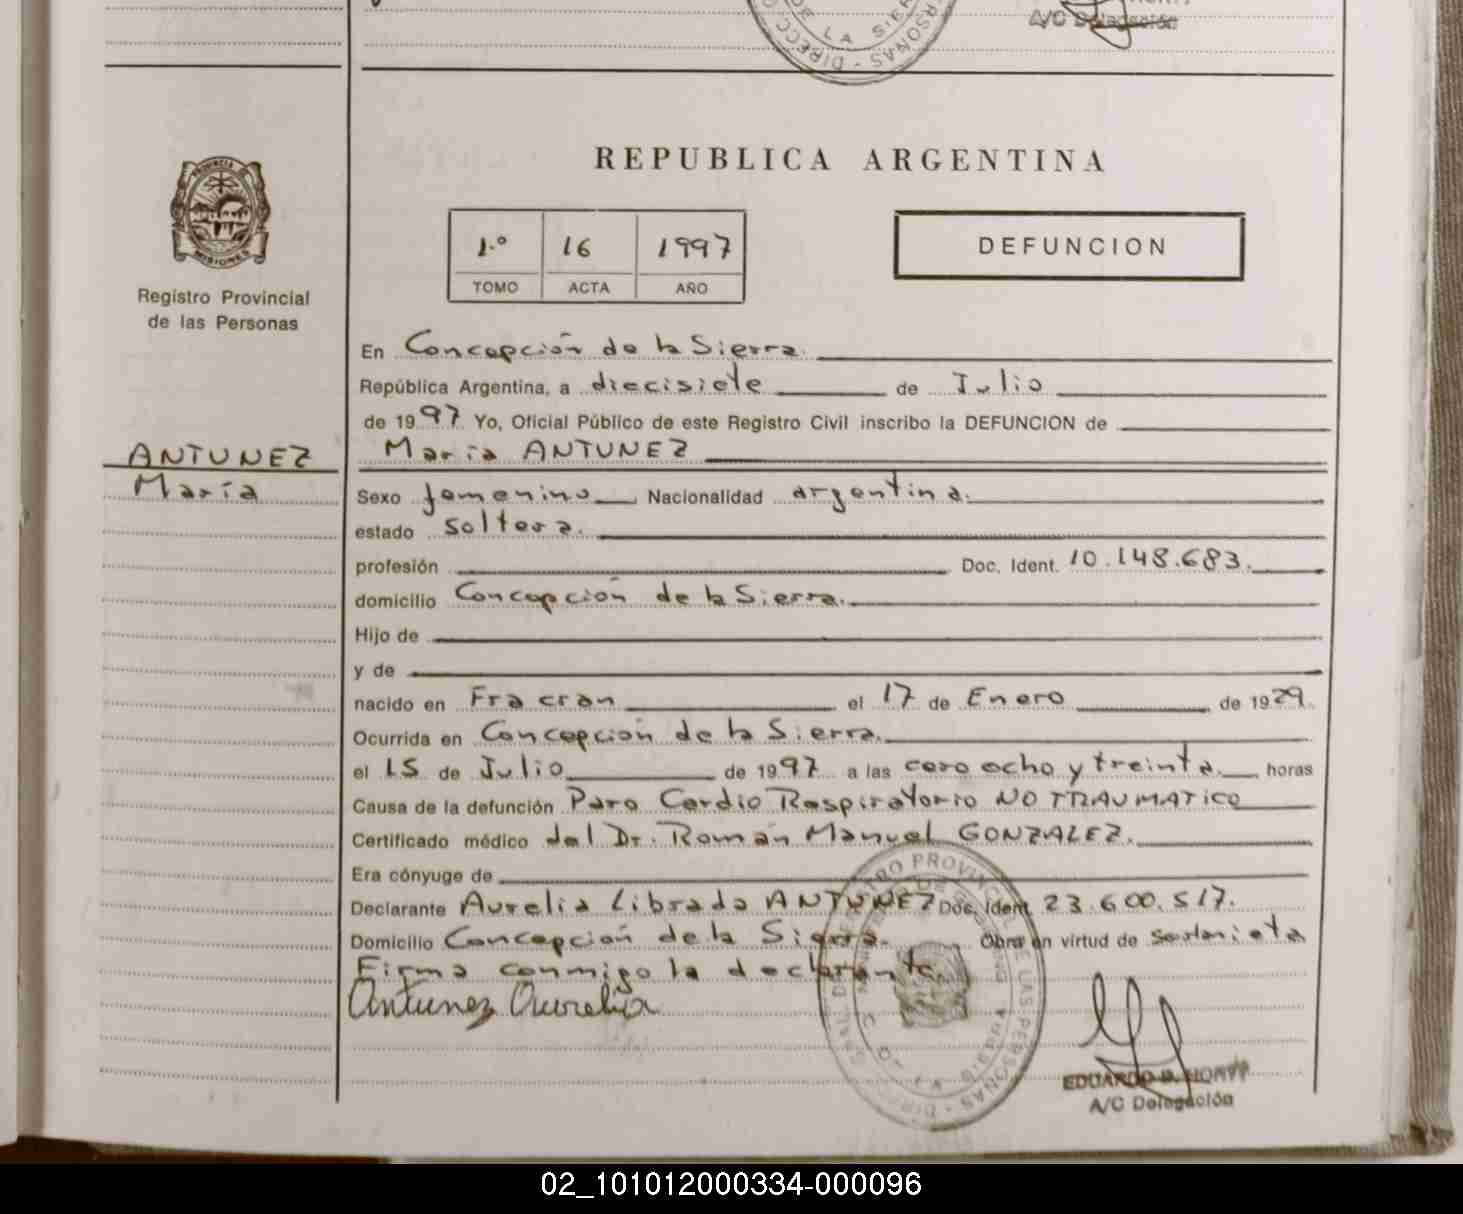 A/C Delegación
REPUBLICA ARGENTINA
PROVINCIA DE
MISIONES
Registro Provincial
de las Personas
1.º 16 1997
TOMO ACTA AÑO
DEFUNCION
En Concepción de la Sierra.
República Argentina, a diecisiete de Julio
de 1997. Yo, Oficial Público de este Registro Civil inscribo la DEFUNCION de
María ANTUNEZ
ANTUNEZ
María
Sexo femenino Nacionalidad argentina.
estado soltera.
profesión Doc. Ident. 10.148.683.
domicilio Concepción de la Sierra.
Hijo de
y de
nacido en Fracran el 17 de Enero de 1929.
Ocurrida en Concepción de la Sierra.
el 15 de Julio de 1997 a las cero ocho y treinta. horas
Causa de la defunción Paro Cardio Respiratorio NO TRAUMATICO
Certificado médico del Dr. Román Manuel GONZALEZ.
Era cónyuge de
Declarante Aurelia Librada ANTUNEZ Doc. Ident. 23.600.517.
Domicilio Concepción de la Sierra. Obra en virtud de
Firma conmigo la declarante.
Antunez Aurelia
EDUARDO
A/C Delegación
02_101012000334-000096